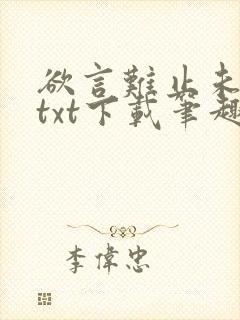 欲言難止未
txt下載筆趣
李偉忠